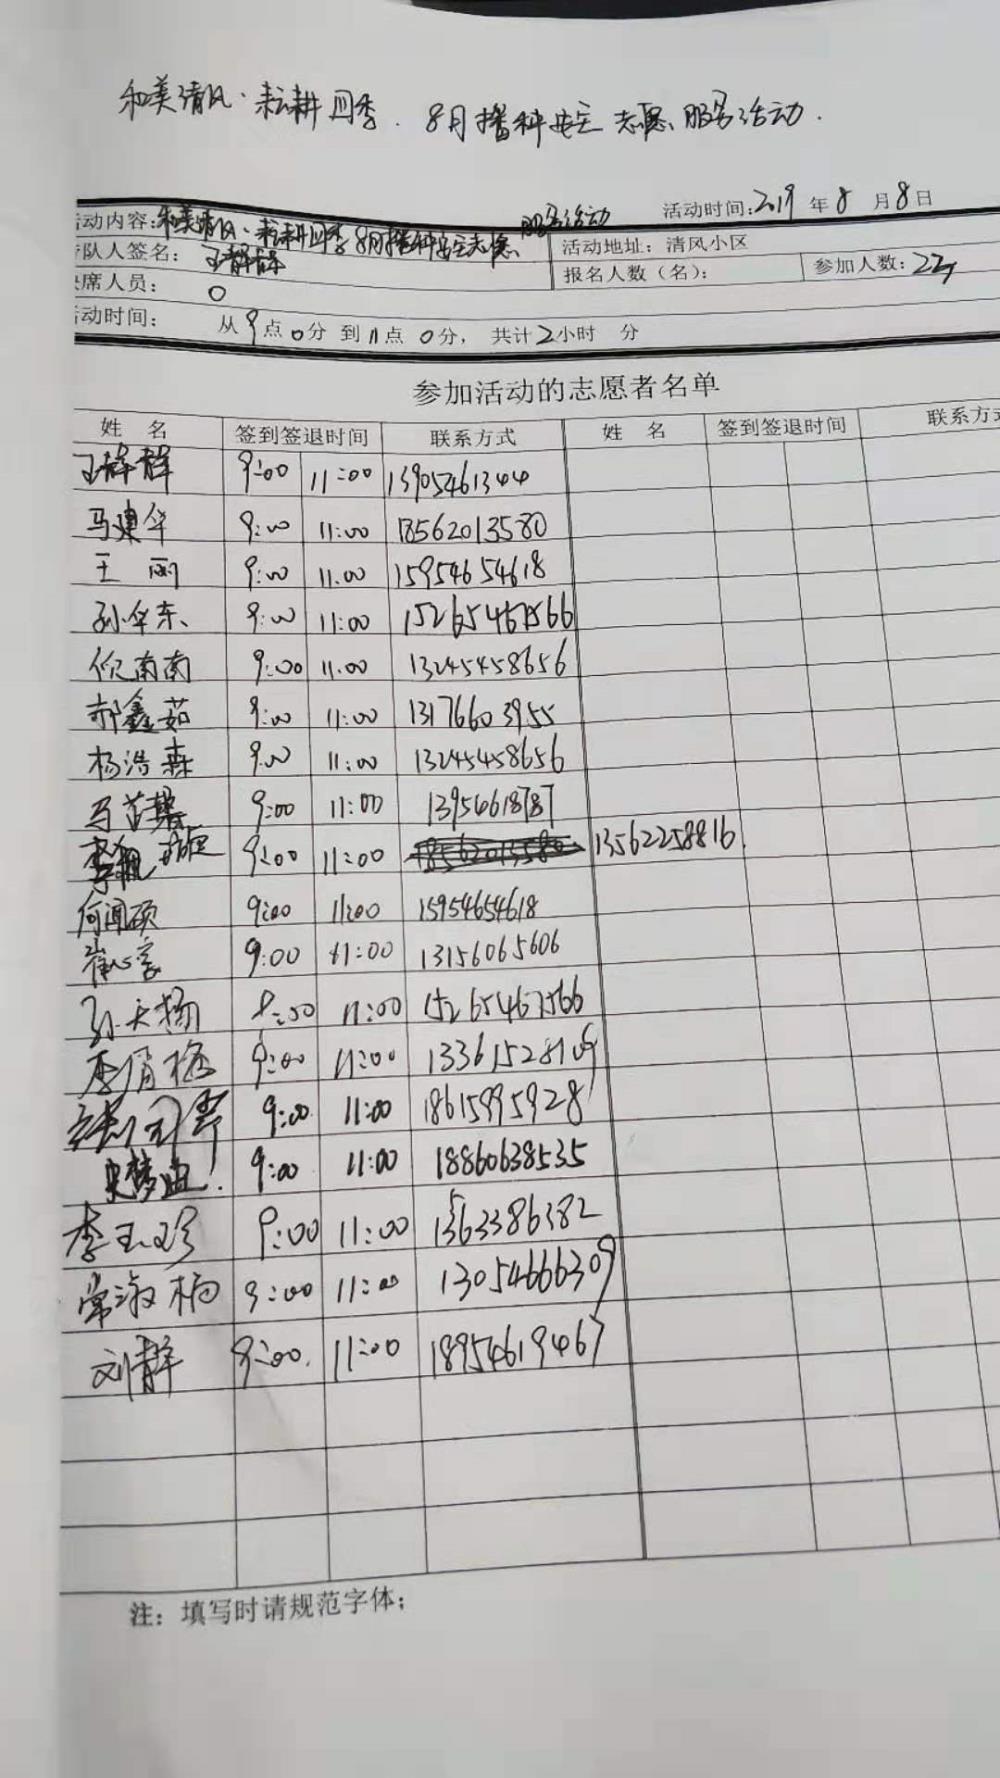 和美清风·耘耕四季.8月播种安全志愿服务活动.
活动时间:2019年8月8日
活动内容:和美清风·耘耕四季8月播种安全志愿服务活动
活动地址:清风小区
队人签名:王静静
报名人数(名):
参加人数:22
席人员: 0
动时间: 从9点0分到11点0分,共计2小时 分
参加活动的志愿者名单
姓 名 签到签退时间 联系方式 姓 名 签到签退时间 联系方
王静静 9:00 11:00 13905461344
马建华 9:00 11:00 18562013580
王丽 9:00 11:00 15954654618
孙华东 9:00 11:00 15265467566
倪南南 9:00 11:00 13245458656
郝鑫茹 9:00 11:00 13176603955
杨浩森 9:00 11:00 13245458656
马 9:00 11:00 13954618787
李 9:00 11:00 13562258816
何闻硕 9:00 11:00 15954654618
崔心 9:00 11:00 13156065606
孙天扬 11:00 15265467566
李俏梅 9:00 11:00 13361528109
9:00 11:00 18615995928
史梦迪 9:00 11:00 18860638535
李玉珍 9:00 11:00
常淑楠 9:00 11:00 13054666309
刘静 9:00 11:00 18954619467
注:填写时请规范字体;